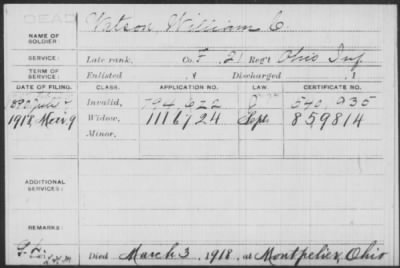 DEAD
NAME OF SOLDIER: Watson, William C.
SERVICE: Late rank, Co. F, 21 Reg't Ohio Inf
TERM OF SERVICE: Enlisted , 1 Discharged , 1
DATE OF FILING. CLASS. APPLICATION NO. LAW. CERTIFICATE NO.
Invalid, 794,622 570,935
1918, 9 Widow, 1116724 859814
Minor.
ADDITIONAL SERVICES:
REMARKS:
Died March 3, 1918, at Montpelier, Ohio